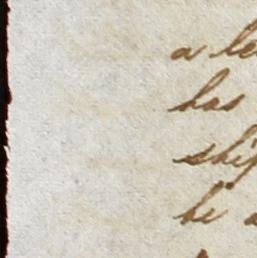 a le
has
ship
he a